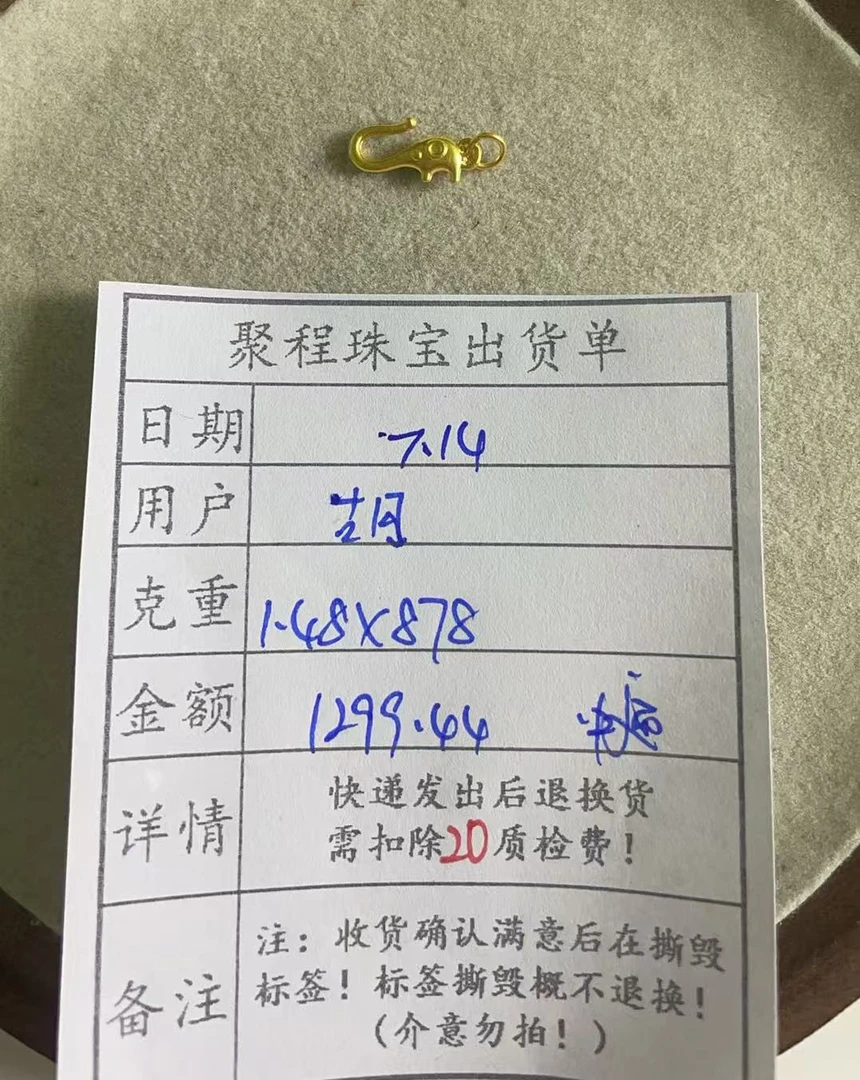 聚程珠宝出货单
日期 7.14
用户 胡
克重 1.48X878
金额 1299.44
详情 快递发出后退换货
需扣除20质检费！
备注 注：收货确认满意后在撕毁
标签！标签撕毁概不退换！
（介意勿拍！）